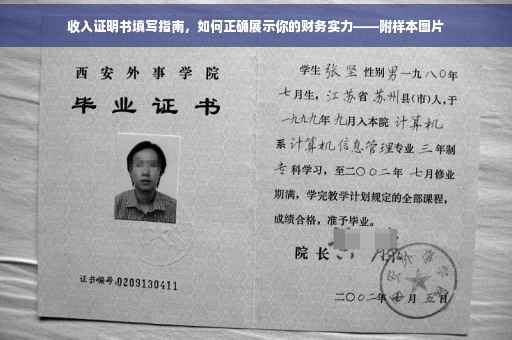 收入证明书填写指南，如何正确展示你的财务实力——附样本图片
西安外事学院
毕业证书
证书编号:0209130411
学生 张坚 性别 男 一九八〇年
七月生，江苏省 苏州县(市)人，于
一九九九年 九月入本院 计算机
系 计算机信息管理专业 三 年制
专科学习，至二〇〇二年 七月修业
期满，学完教学计划规定的全部课程，
成绩合格，准予毕业。
院长
二〇〇二年 月五日